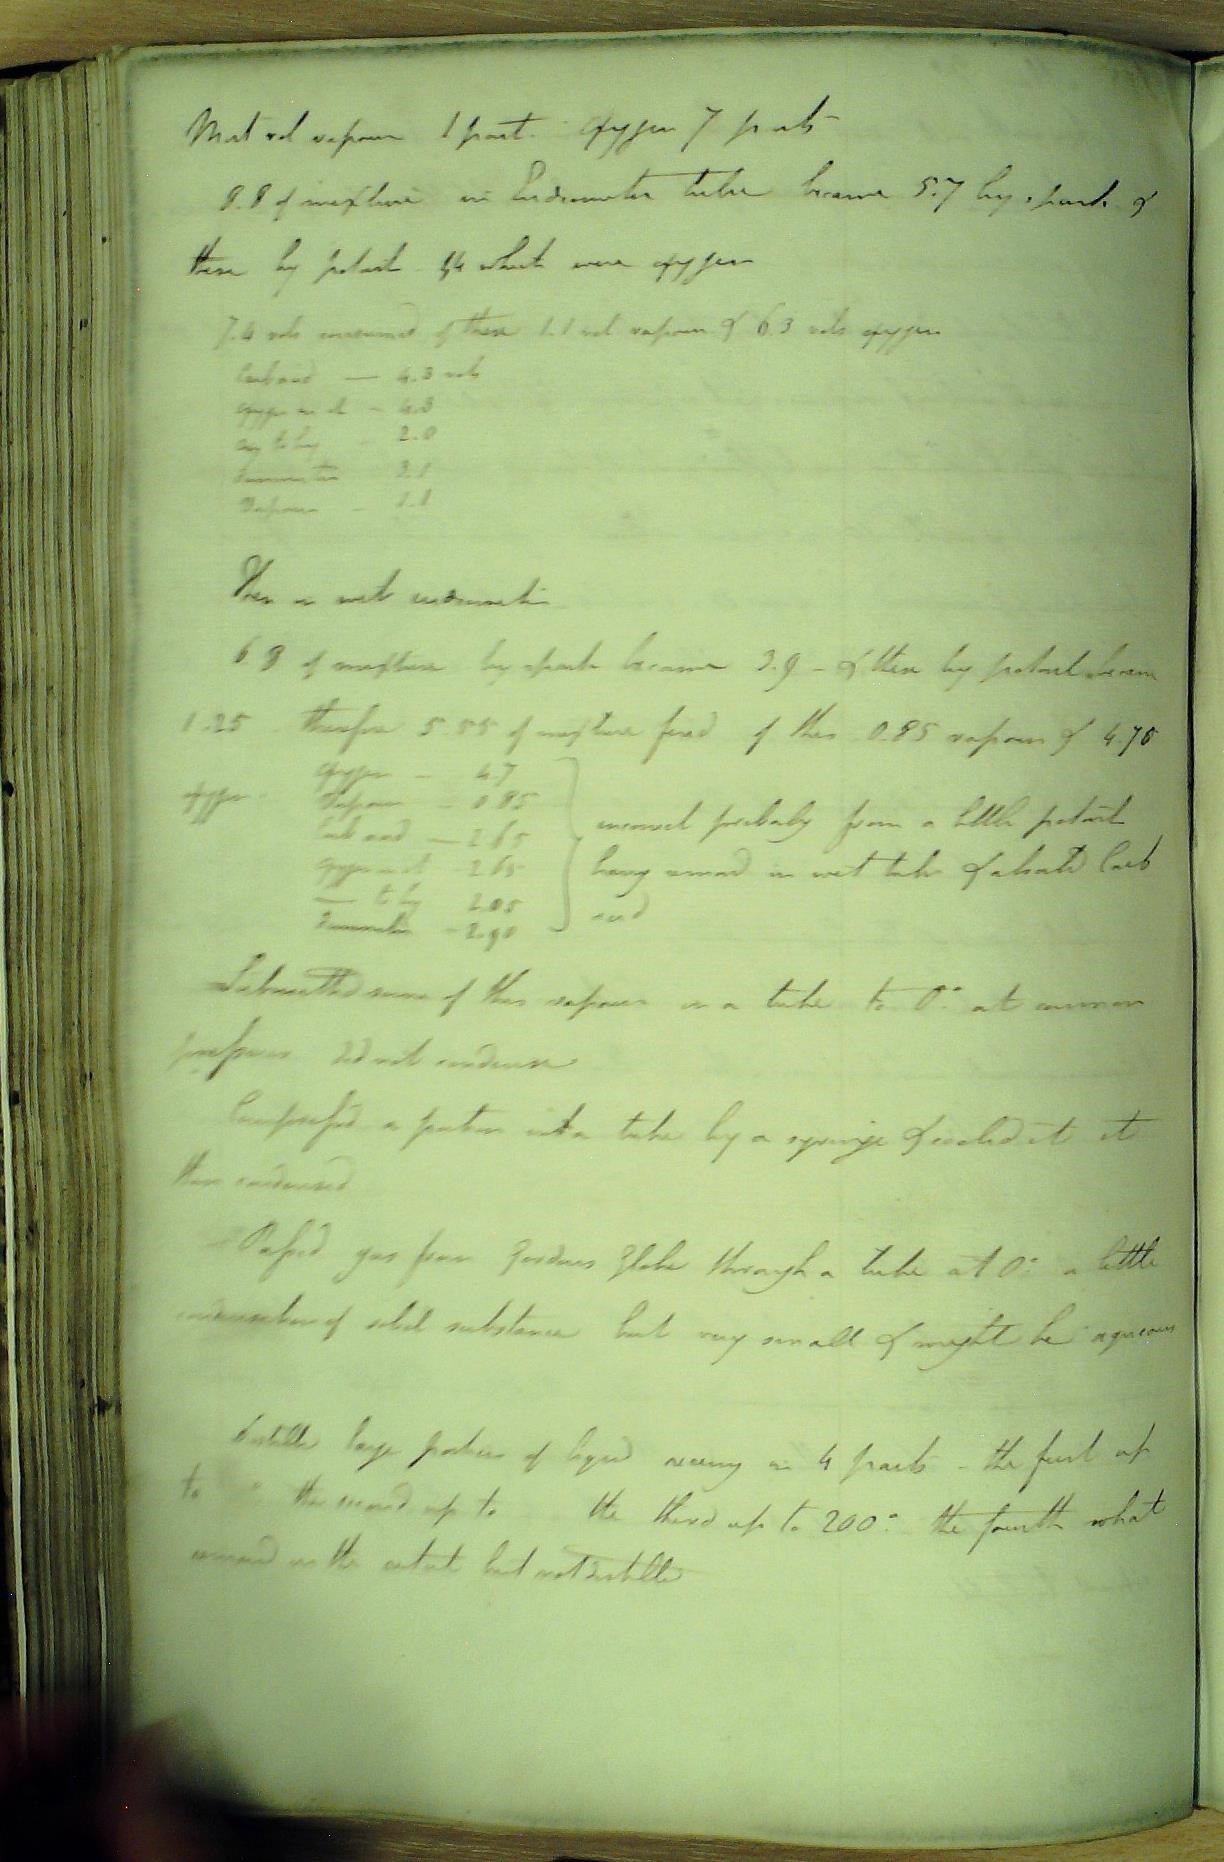 Mixt vol vapour 1 part. Oxygen 7 parts
8.8 of mixture in Eudiometer tube became 5.7 by spark &
these by potash 1.4 which were oxygen
7.4 vols consumed of these 1.1 vol vapour & 6.3 vols oxygen
Carb acid — 4.3 vols
oxygen in it - 4.3
oxy to hy - 2.0
Diminution 3.1
Vapour - 1.1
Then in wet eudiometer
6 8 of mixture by spark became 3.9 - & these by potash became
1.25 therefore 5.55 of mixture fired of this 0.85 vapour & 4.70
oxygen
oxygen - 4.7
Vapour - 0.85
Carb acid - 2.65
oxygen in it - 2.65
— to hy 2.05
Diminution - 2.90
incorrect probably from a little potash
having remained in wet tube & absorbd Carb
acid
Submitted some of this vapour in a tube to 0° at common
pressure did not condense
Compressed a portion into a tube by a syringe & cooled it it
then condensed
Passed gas from Gordons Globe through a tube at 0° a little
condensation of solid substance but very small & might be aqueous
Distilld large portion of liquid receiving in 4 parts - the first up
to ° the second up to the third up to 200° the fourth what
remained in the retort but not distilld